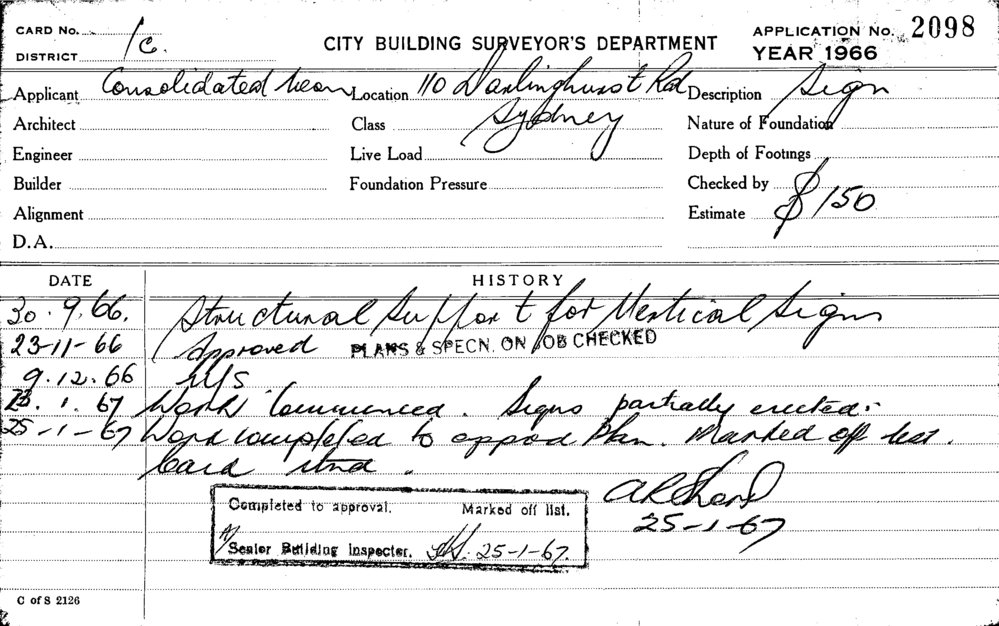 CARD No. 1c. CITY BUILDING SURVEYOR'S DEPARTMENT APPLICATION No. 2098
DISTRICT YEAR 1966
Applicant Consolidated Neon Location 110 Darlinghurst Rd Description Sign
Architect Class Sydney Nature of Foundation
Engineer Live Load Depth of Footings
Builder Foundation Pressure Checked by
Alignment Estimate $150
D.A.
DATE HISTORY
30.9.66. Structural Support for Vertical Sign
23-11-66 Approved PLANS & SPECN. ON JOB CHECKED
9.12.66 N/S
23.1.67 Work Commenced. Signs partially erected.
25-1-67 Work completed to appod Plan. Marked off list.
Card rtnd.
25-1-67
Completed to approval. Marked off list.
Senior Building Inspector. 25-1-67.
C of S 2126